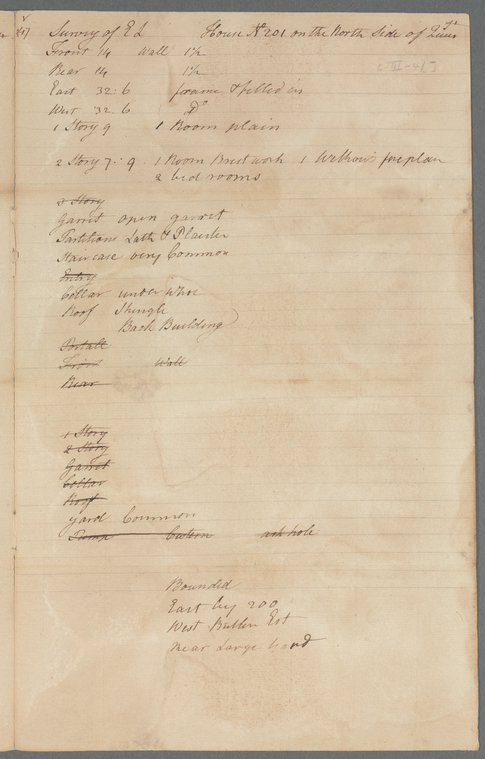 Survey of E L House No 201 on the North Side of St
Front 14 Wall 1½
Rear 14 1½
East 32:6 frame & filled in
West 32:6 Do
1 Story 9 1 Room plain
2 Story 7:9 1 Room Brest work 1 Without fire plan
2 bed rooms
3 Story
Garret open garret
Partitions Lath & Plaister
Staircase very Common
Entry
Cellar under whole
Roof Shingle
Back Building
Front Wall
Rear
1 Story
2 Story
Garret
Cellar
Roof
yard Common
Pump Cistern ash hole
Bounded
East by 200
West Est
Rear Large